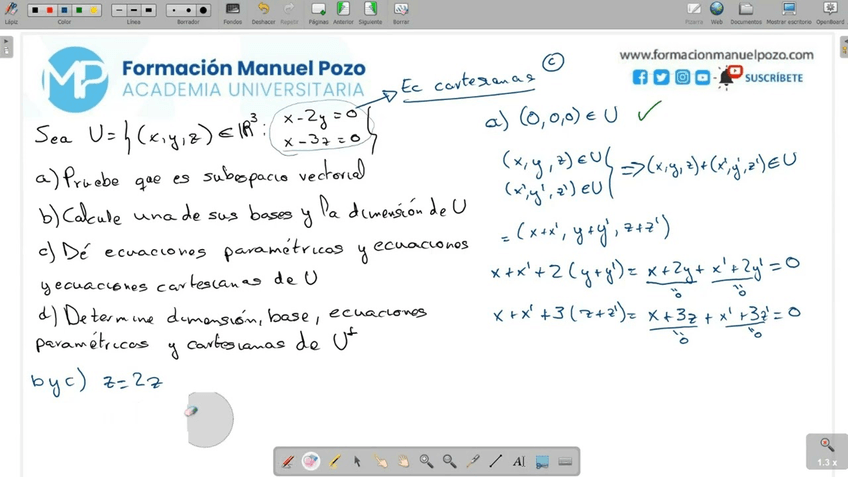 Lápiz
Color
Línea
Borrador
Fondos
Deshacer
Repetir
Páginas
Anterior
Siguiente
Borrar
Pizarra
Web
Documentos
Mostrar escritorio
OpenBoard
MP
Formación Manuel Pozo
ACADEMIA UNIVERSITARIA
www.formacionmanuelpozo.com
SUSCRÍBETE
Ec cartesianas (c)
Sea U = { (x,y,z) ∈ ℝ³ : x-2y=0
x-3z=0 }
a) Pruebe que es subespacio vectorial
b) Calcule una de sus bases y la dimensión de U
c) Dé ecuaciones paramétricas y ecuaciones
y ecuaciones cartesianas de U
d) Determine dimensión, base, ecuaciones
paramétricas y cartesianas de U^⊥
b y c) z=2z
a) (0,0,0) ∈ U ✓
(x,y,z) ∈ U
(x',y',z') ∈ U } ⟹ (x,y,z)+(x',y',z') ∈ U
= (x+x', y+y', z+z')
x+x'+2(y+y') = x+2y + x'+2y' = 0
0 0
x+x'+3(z+z') = x+3z + x'+3z' = 0
0 0
1.3 x